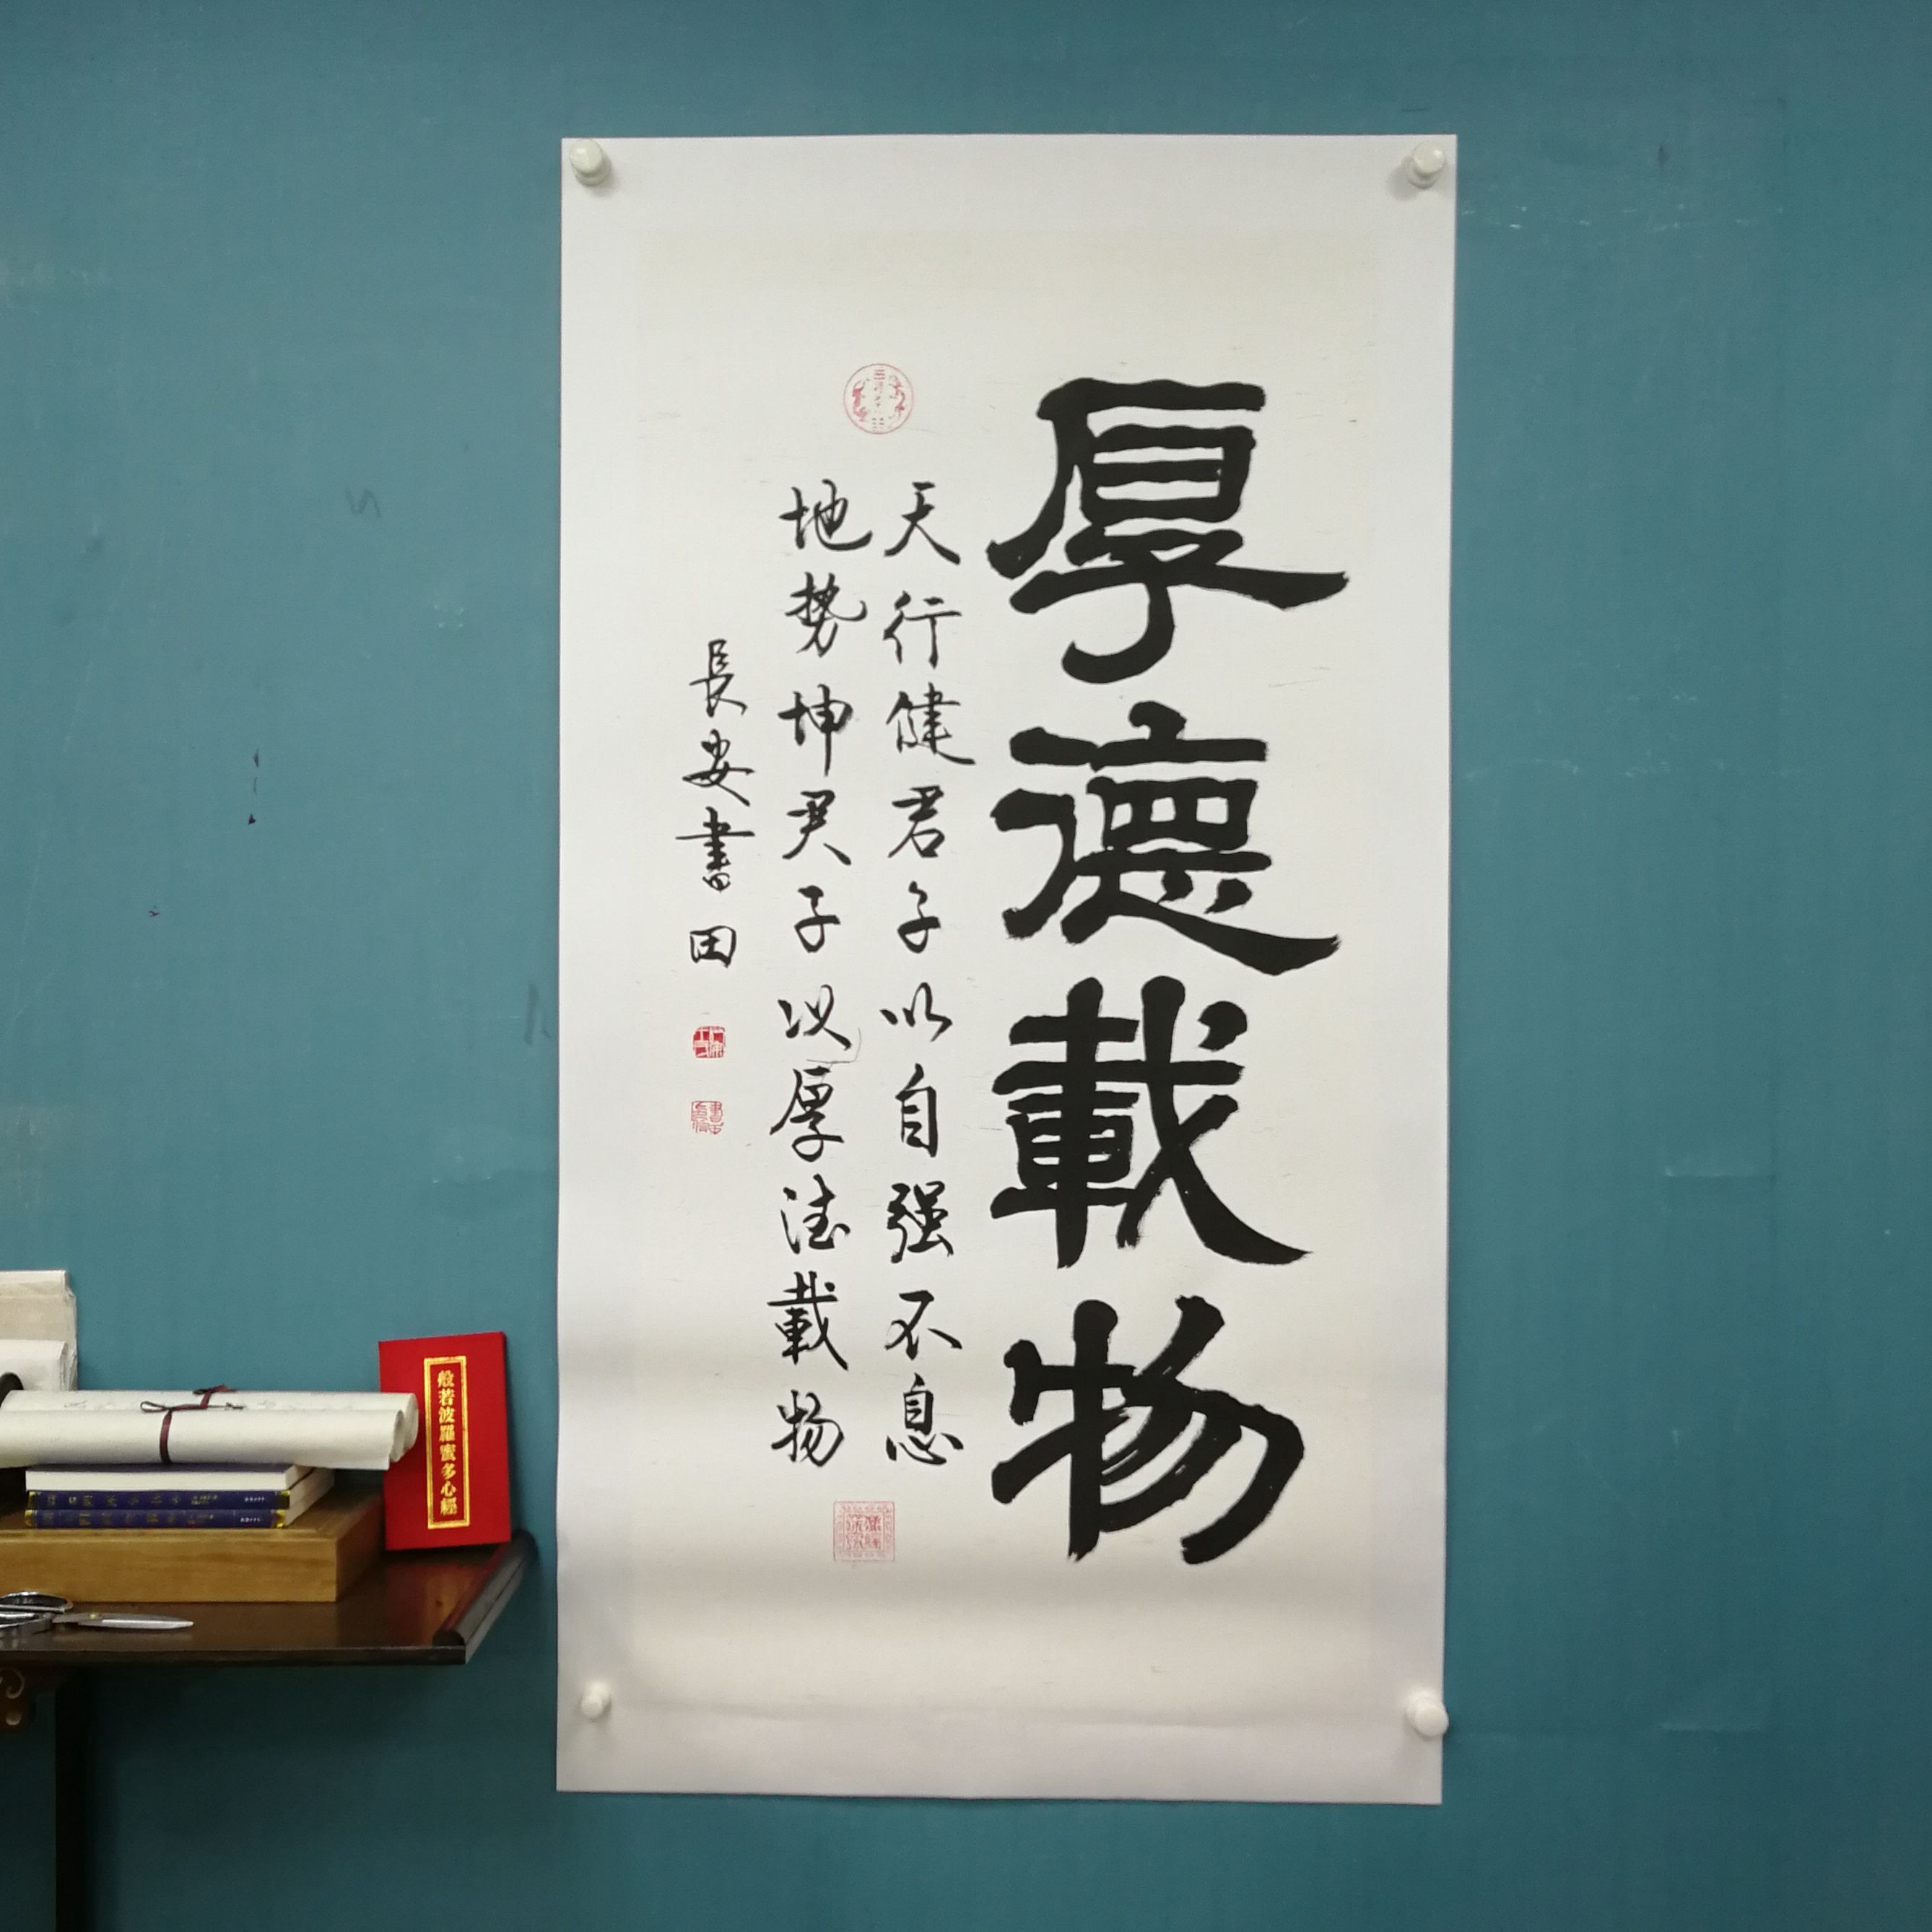 厚德載物
天行健君子以自强不息
地势坤君子以厚德載物
長安書田
般若波羅蜜多心經